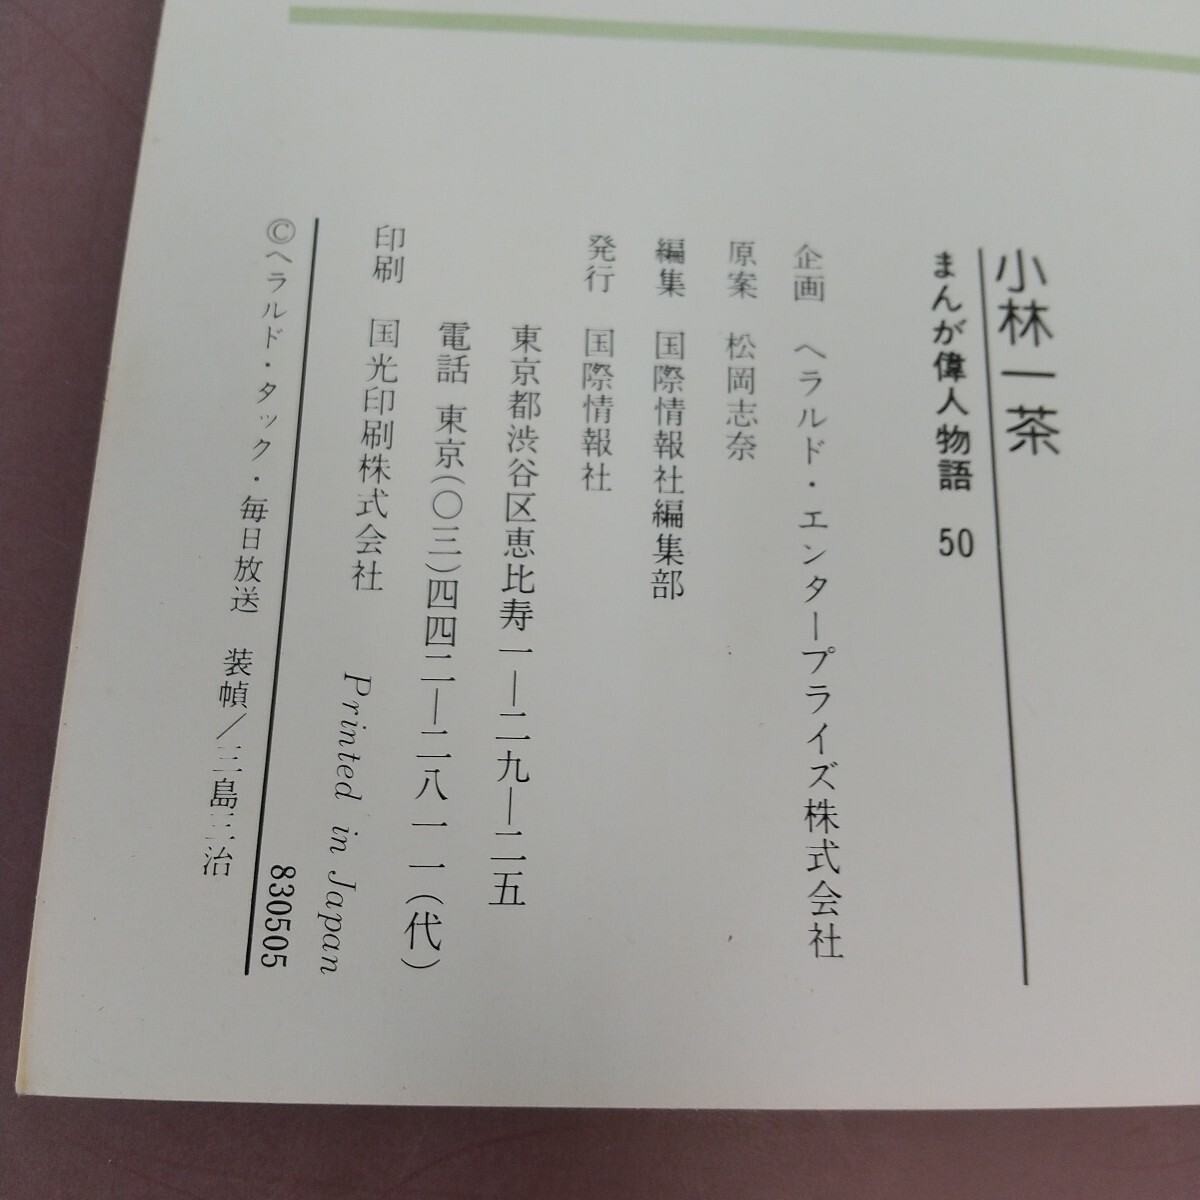 小林一茶
まんが偉人物語 50
企画 ヘラルド・エンタープライズ株式会社
原案 松岡志奈
編集 国際情報社編集部
発行 国際情報社
東京都渋谷区恵比寿一―二九―二五
電話 東京(〇三)四四二―二八一一(代)
印刷 国光印刷株式会社
Printed in Japan
830505
©ヘラルド・タック・毎日放送 装幀/三島三治